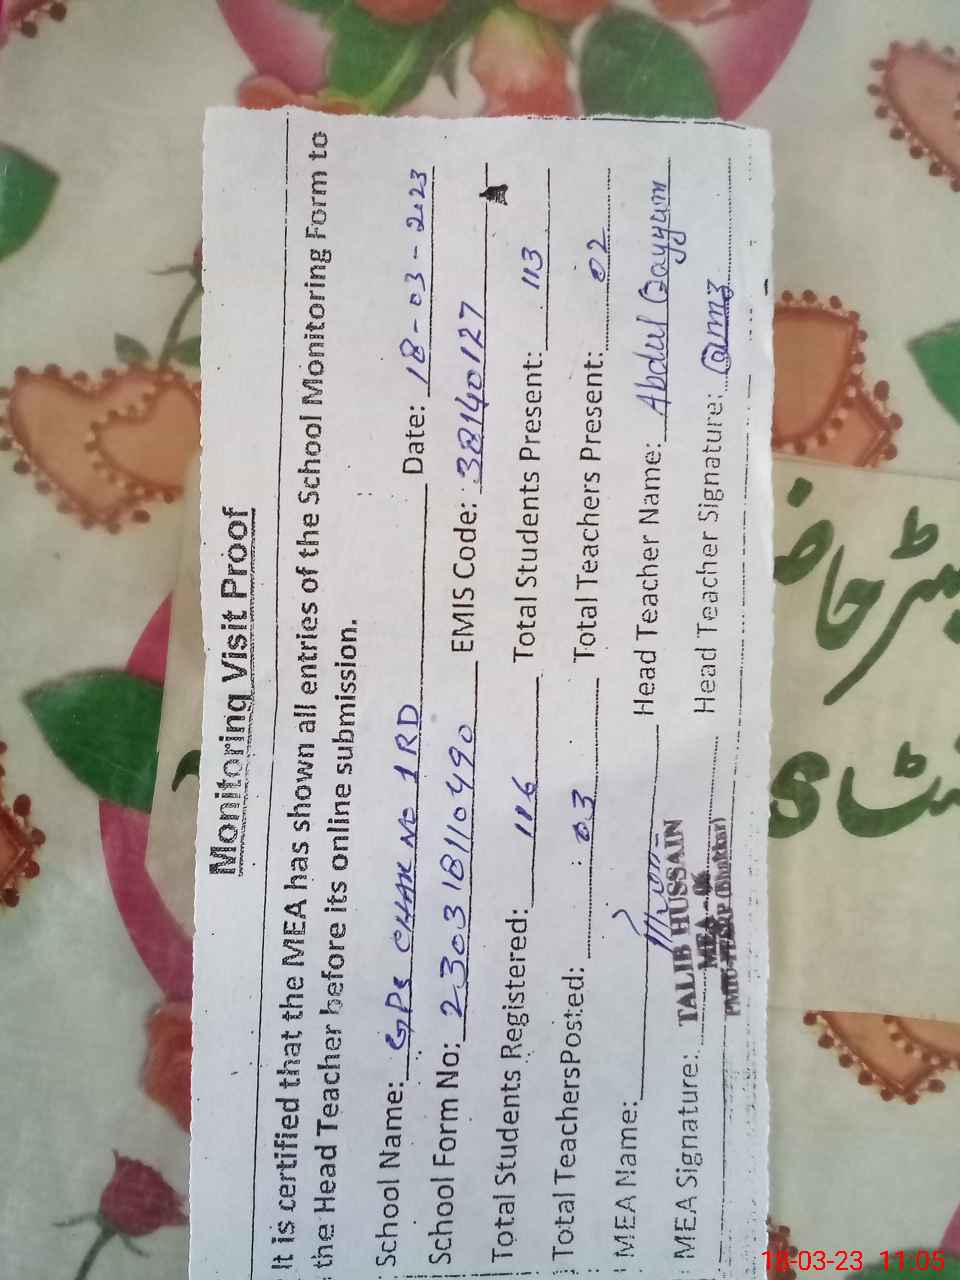 Monitoring Visit Proof
It is certified that the MEA has shown all entries of the School Monitoring Form to
the Head Teacher before its online submission.
School Name: GPS CHAK NO 1 RD Date: 18-03-2023
School Form No: 230318110490 EMIS Code: 38140127
Total Students Registered: 116 Total Students Present: 113
Total TeachersPosted: 03 Total Teachers Present: 02
MEA Name: Head Teacher Name: Abdul Qayyum
MEA Signature: Head Teacher Signature:
TALIB HUSSAIN
MEA-06
(Bhakkar)
18-03-23 11:05